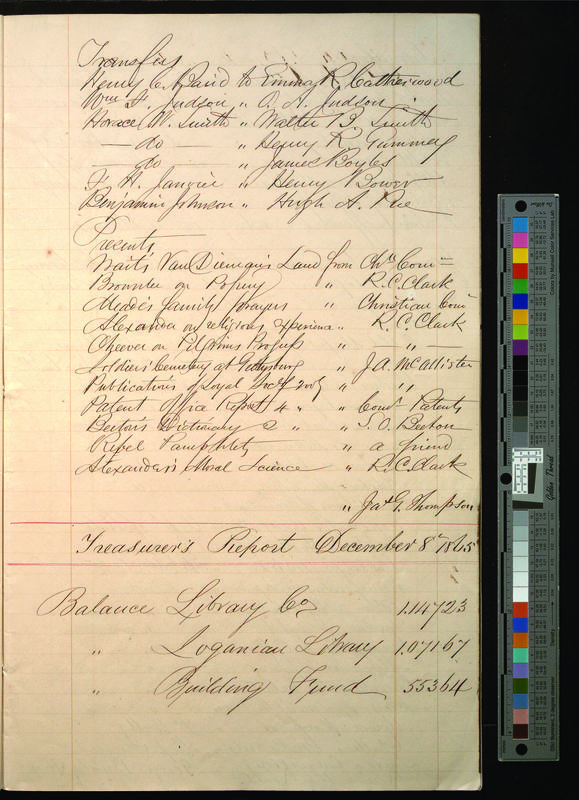 Transfers
Henry C. Baird to Emma R. Catherwood
Wm F. Judson " O. H. Judson
Horace W. Smith " Walter B Smith
— do — " Henry R. Gummey
— do — " James Boyles
F. H. Janvier " Henry Bower
Benjamin Johnson " Hugh A.
Presents
Wait's Van Dieman's Land from Chs Com
Brownlee on " R. C. Clark
Meade's family prayers " Christian Com
Alexander on religious experience " R. C. Clark
Cheever on Pilgrims Progress " — " —
Soldiers' Cemetery at Gettysburg " J. A. McAllister
Publications of Loyal Socy " "
Patent Office Report 4 " " Comr Patents
Beeton's Dictionary 2 " " S. O. Beeton
Rebel Pamphlets " a friend
Alexander's Moral Science " R. C. Clark
" Jas G. Thompson
Treasurer's Report December 8th 1865
Balance Library Co 1.147 23
" Loganian Library 1.071 67
" Building Fund 553 64